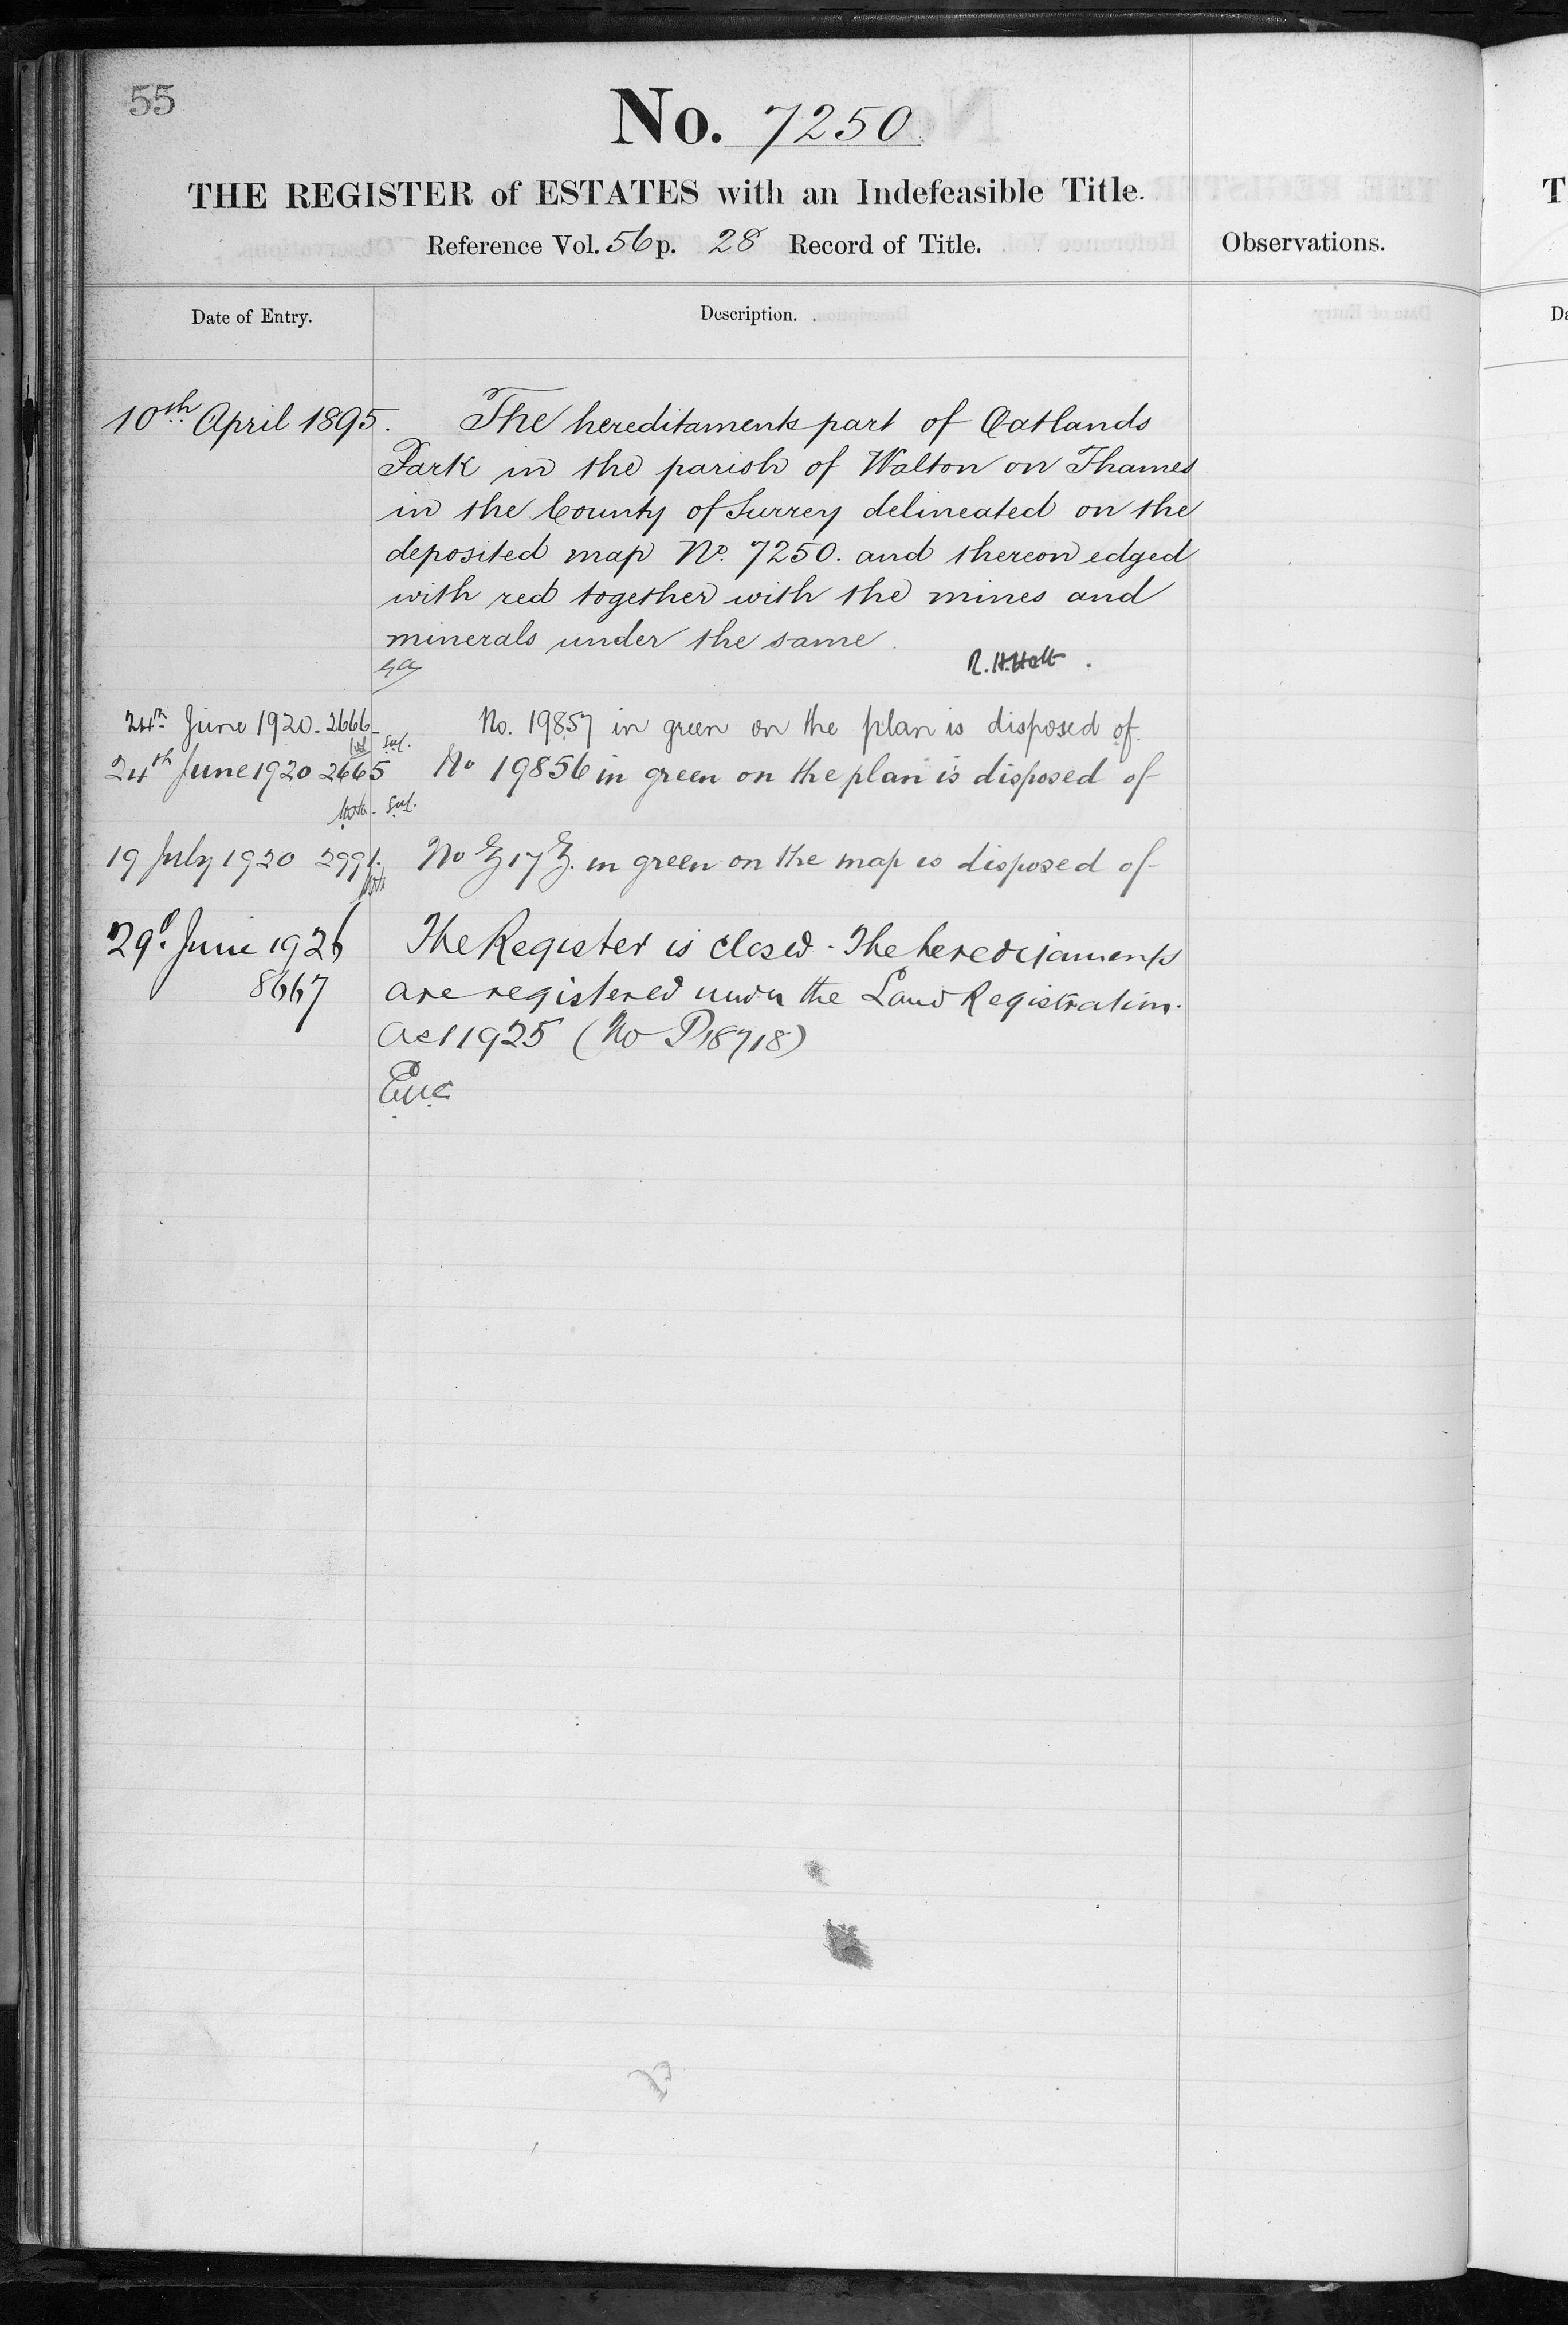 55
No. 7250
THE REGISTER of ESTATES with an Indefeasible Title.
Reference Vol. 56 p. 28 Record of Title.
Observations.
Date of Entry.
Description.
10th April 1895. The hereditaments part of Oatlands
Park in the parish of Walton on Thames
in the County of Surrey delineated on the
deposited map No. 7250. and thereon edged
with red together with the mines and
minerals under the same.
R. H. Holt.
24th June 1920. 2666 No. 19857 in green on the plan is disposed of.
24th June 1920 2665 No 19856 in green on the plan is disposed of
19 July 1920 2991. No in green on the map is disposed of
29th June 1926 The Register is closed. The hereditaments
8667 are registered under the Land Registration
Act 1925 (No P18718)